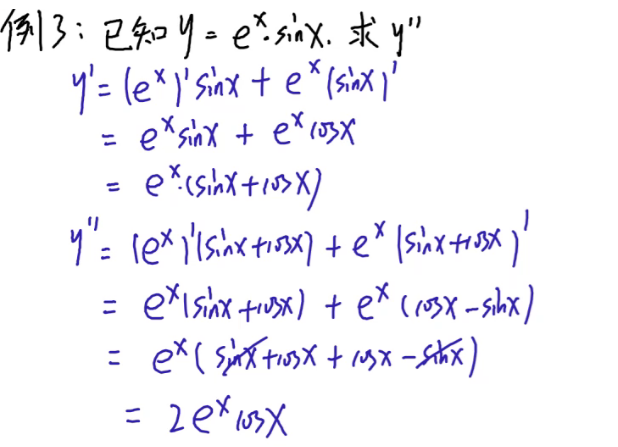 例3：已知y=eˣ·sinx. 求y''
y'=(eˣ)'sinx+eˣ(sinx)'
=eˣsinx+eˣcosx
=eˣ·(sinx+cosx)
y''=(eˣ)'(sinx+cosx)+eˣ(sinx+cosx)'
=eˣ(sinx+cosx)+eˣ(cosx-sinx)
=eˣ(sinx+cosx+cosx-sinx)
=2eˣcosx